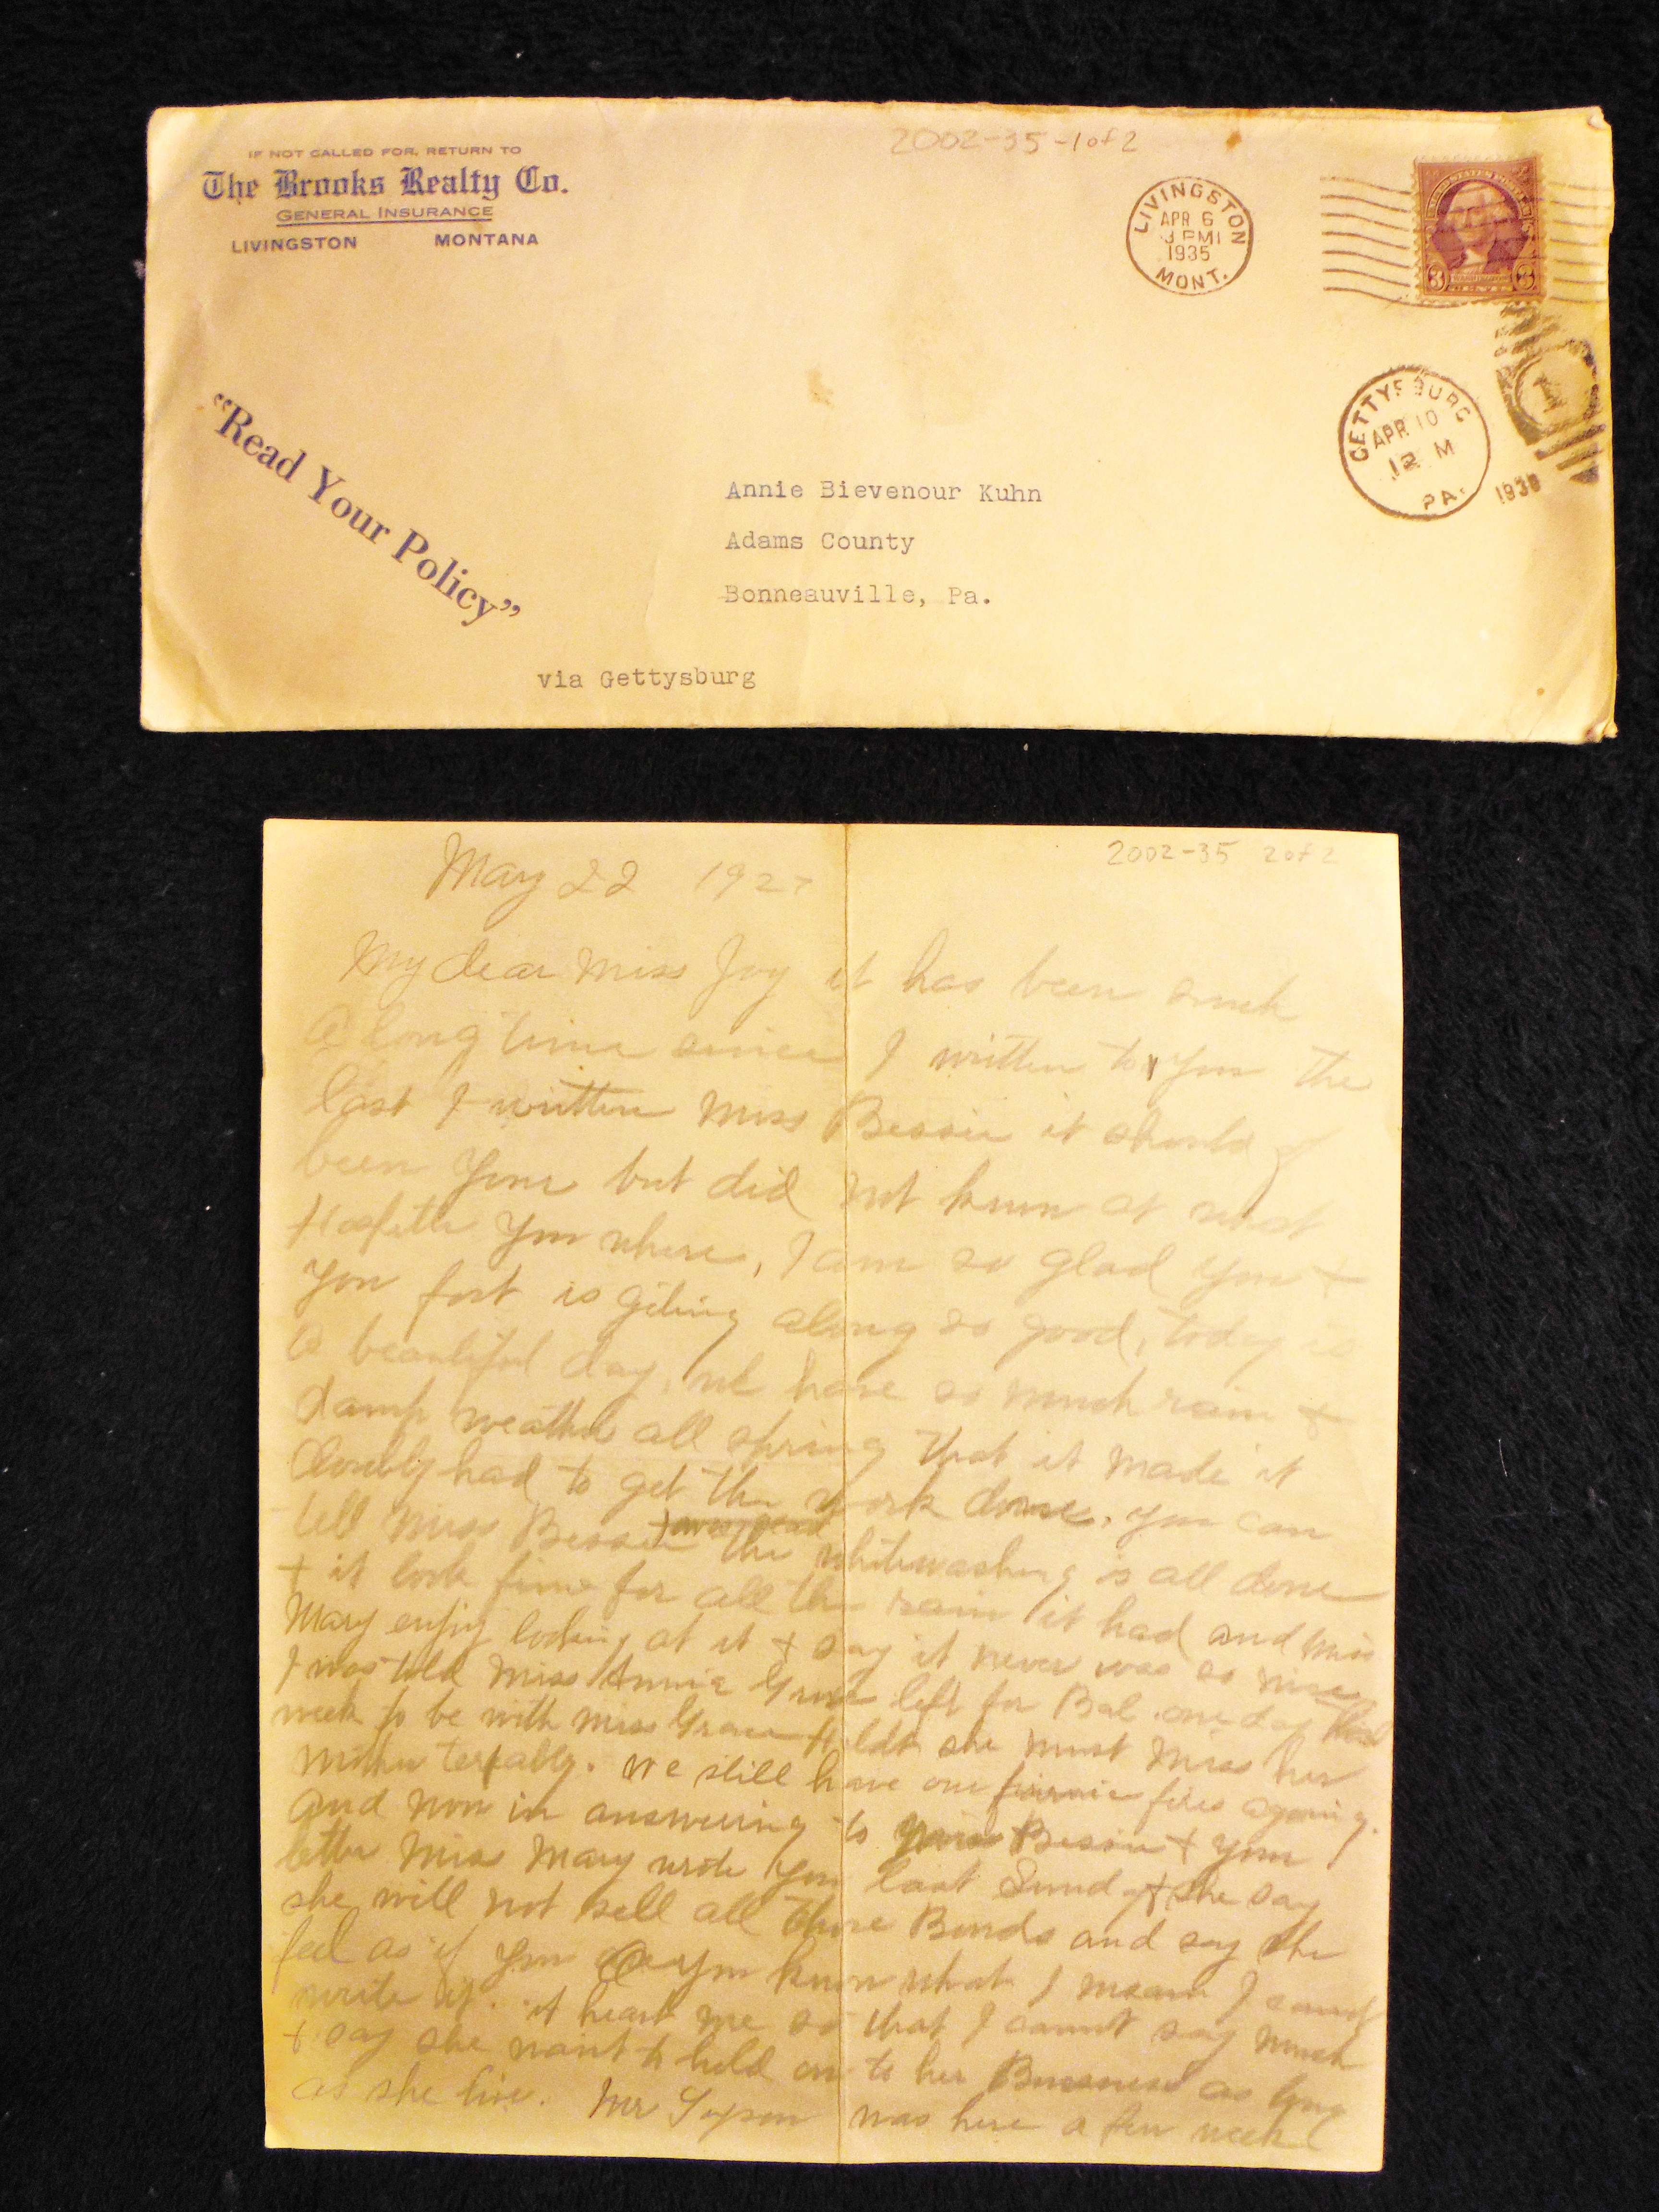 2002-35-1 of 2
IF NOT CALLED FOR, RETURN TO
The Brooks Realty Co.
GENERAL INSURANCE
LIVINGSTON MONTANA
LIVINGSTON
APR 6
3 PM
1935
MONT.
GETTYSBURG
APR 10
12 M
PA.
"Read Your Policy"
Annie Bievenour Kuhn
Adams County
Bonneauville, Pa.
via Gettysburg
2002-35 2 of 2
May 22 1927
My dear Miss Joy it has been such
a long time since I written to you the
last I written Miss Bessie it should of
been your but did not know at what
you where, I am so glad you +
you foot is giting along so good, today is
a beautiful day, we have so much rain +
damp weather all spring that it made it
had to get the work done, you can
tell Miss Bessie the whitewashing is all done
+ it look fine for all the rain it had and Miss
Mary enjoy looking at it + say it never was so nice
I was told Miss Annie left for Bal. one day
week to be with Miss Grace she must miss her
mother terably. We still have our fires agoing.
and now in answering to Bessie + your
letter Miss Mary wrote you last Sunday + she say
she will not sell all those Bonds and say she
feel as if you you know what I mean I cannot
write it. it heart me so that I cannt say much
+ say she want to hold on to her as long
as she live. Mr was here a few week